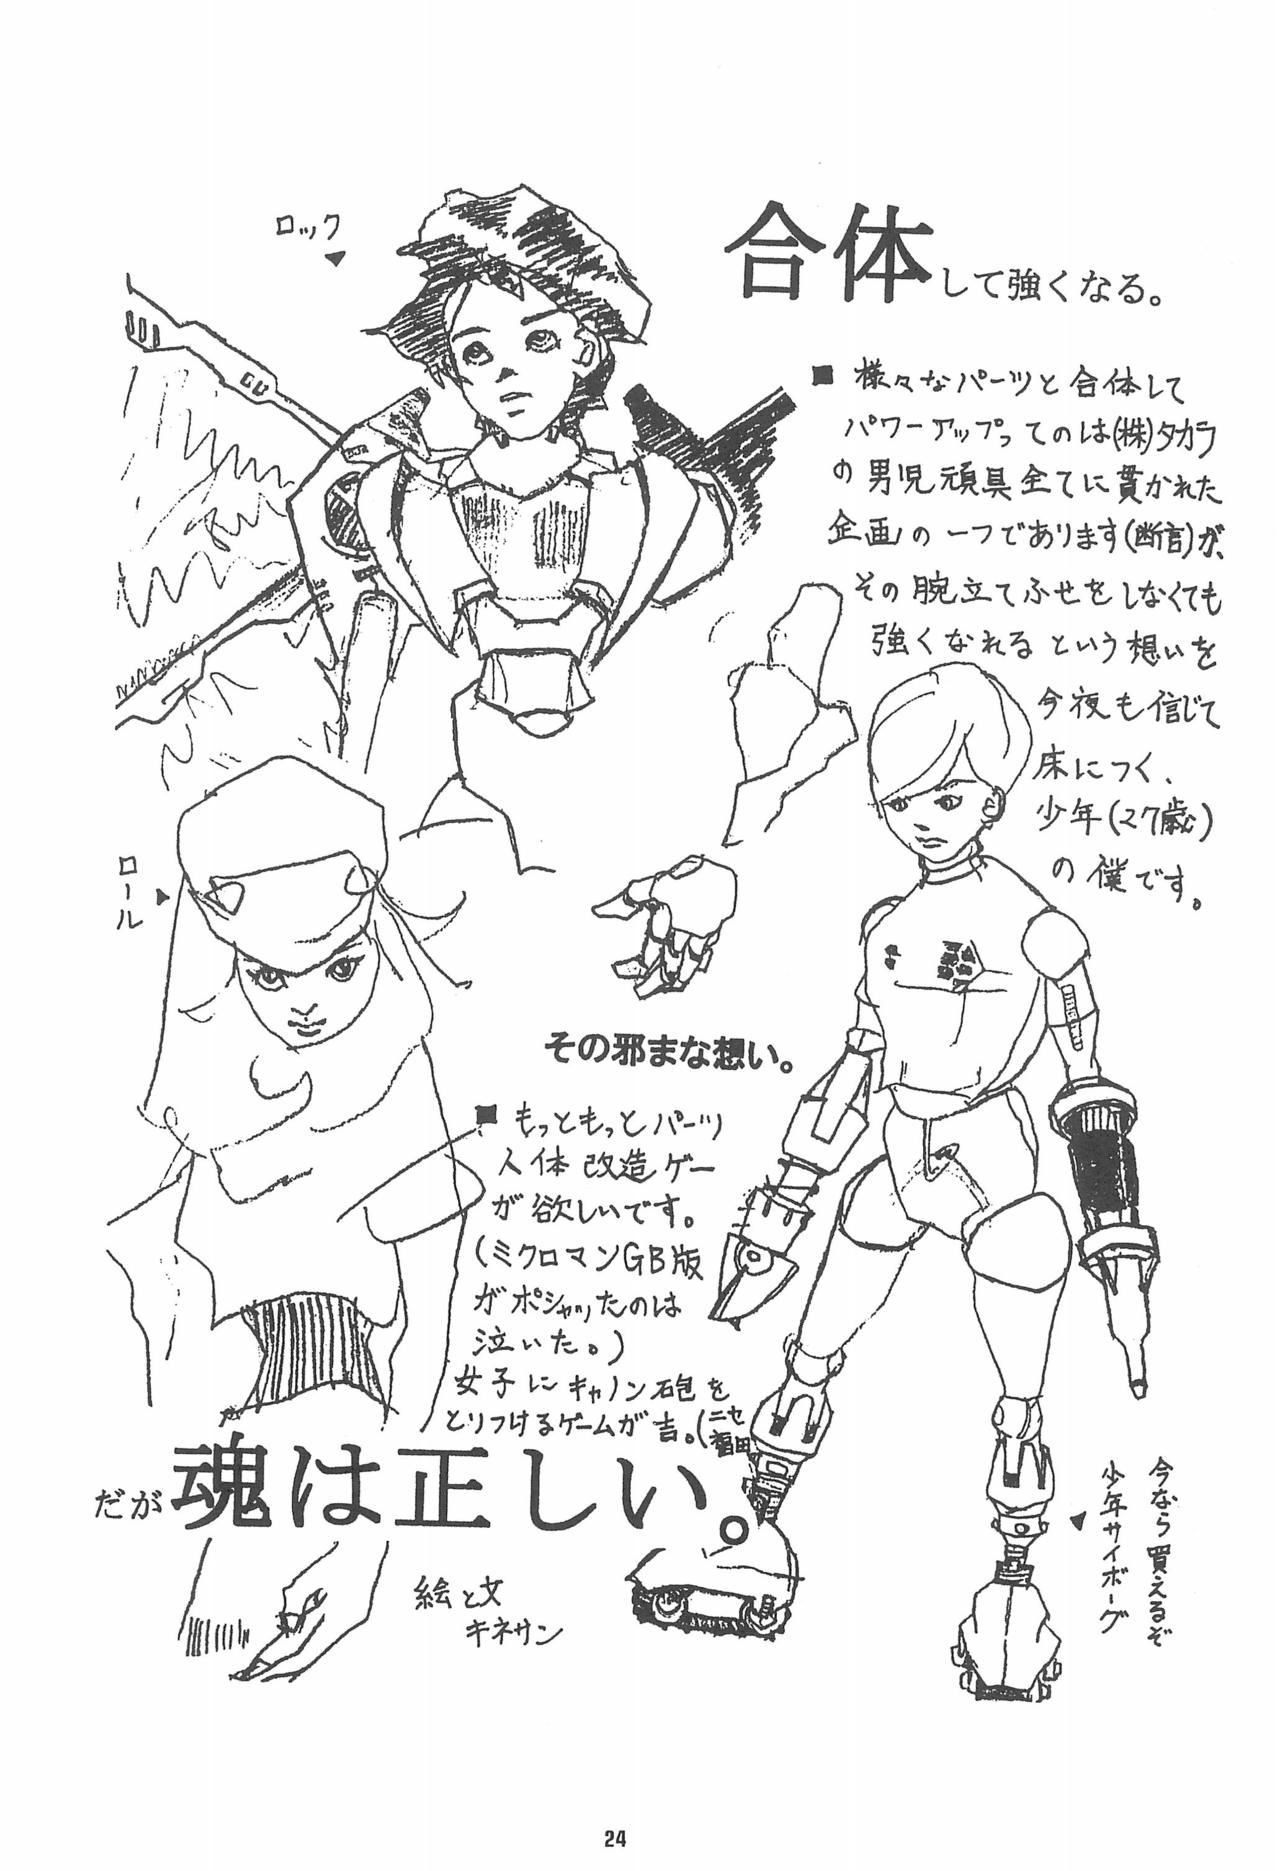 ロック
合体して強くなる。
■ 様々なパーツと合体して
パワーアップってのは(株)タカラ
の男児頑具全てに貫かれた
企画の一つであります(断言)が、
その腕立てふせをしなくても
強くなれるという想いを
今夜も信じて
床につく、
少年(27歳)
の僕です。
ロール
その邪まな想い。
■ もっともっとパーツ
人体改造ゲー
が欲しいです。
(ミクロマンGB版
がポシャッたのは
泣いた。)
女子にキャノン砲を
とりつけるゲームが吉。(ニセ
福田
だが魂は正しい。
今なら買えるぞ
少年サイボーグ
絵と文
キネサン
24